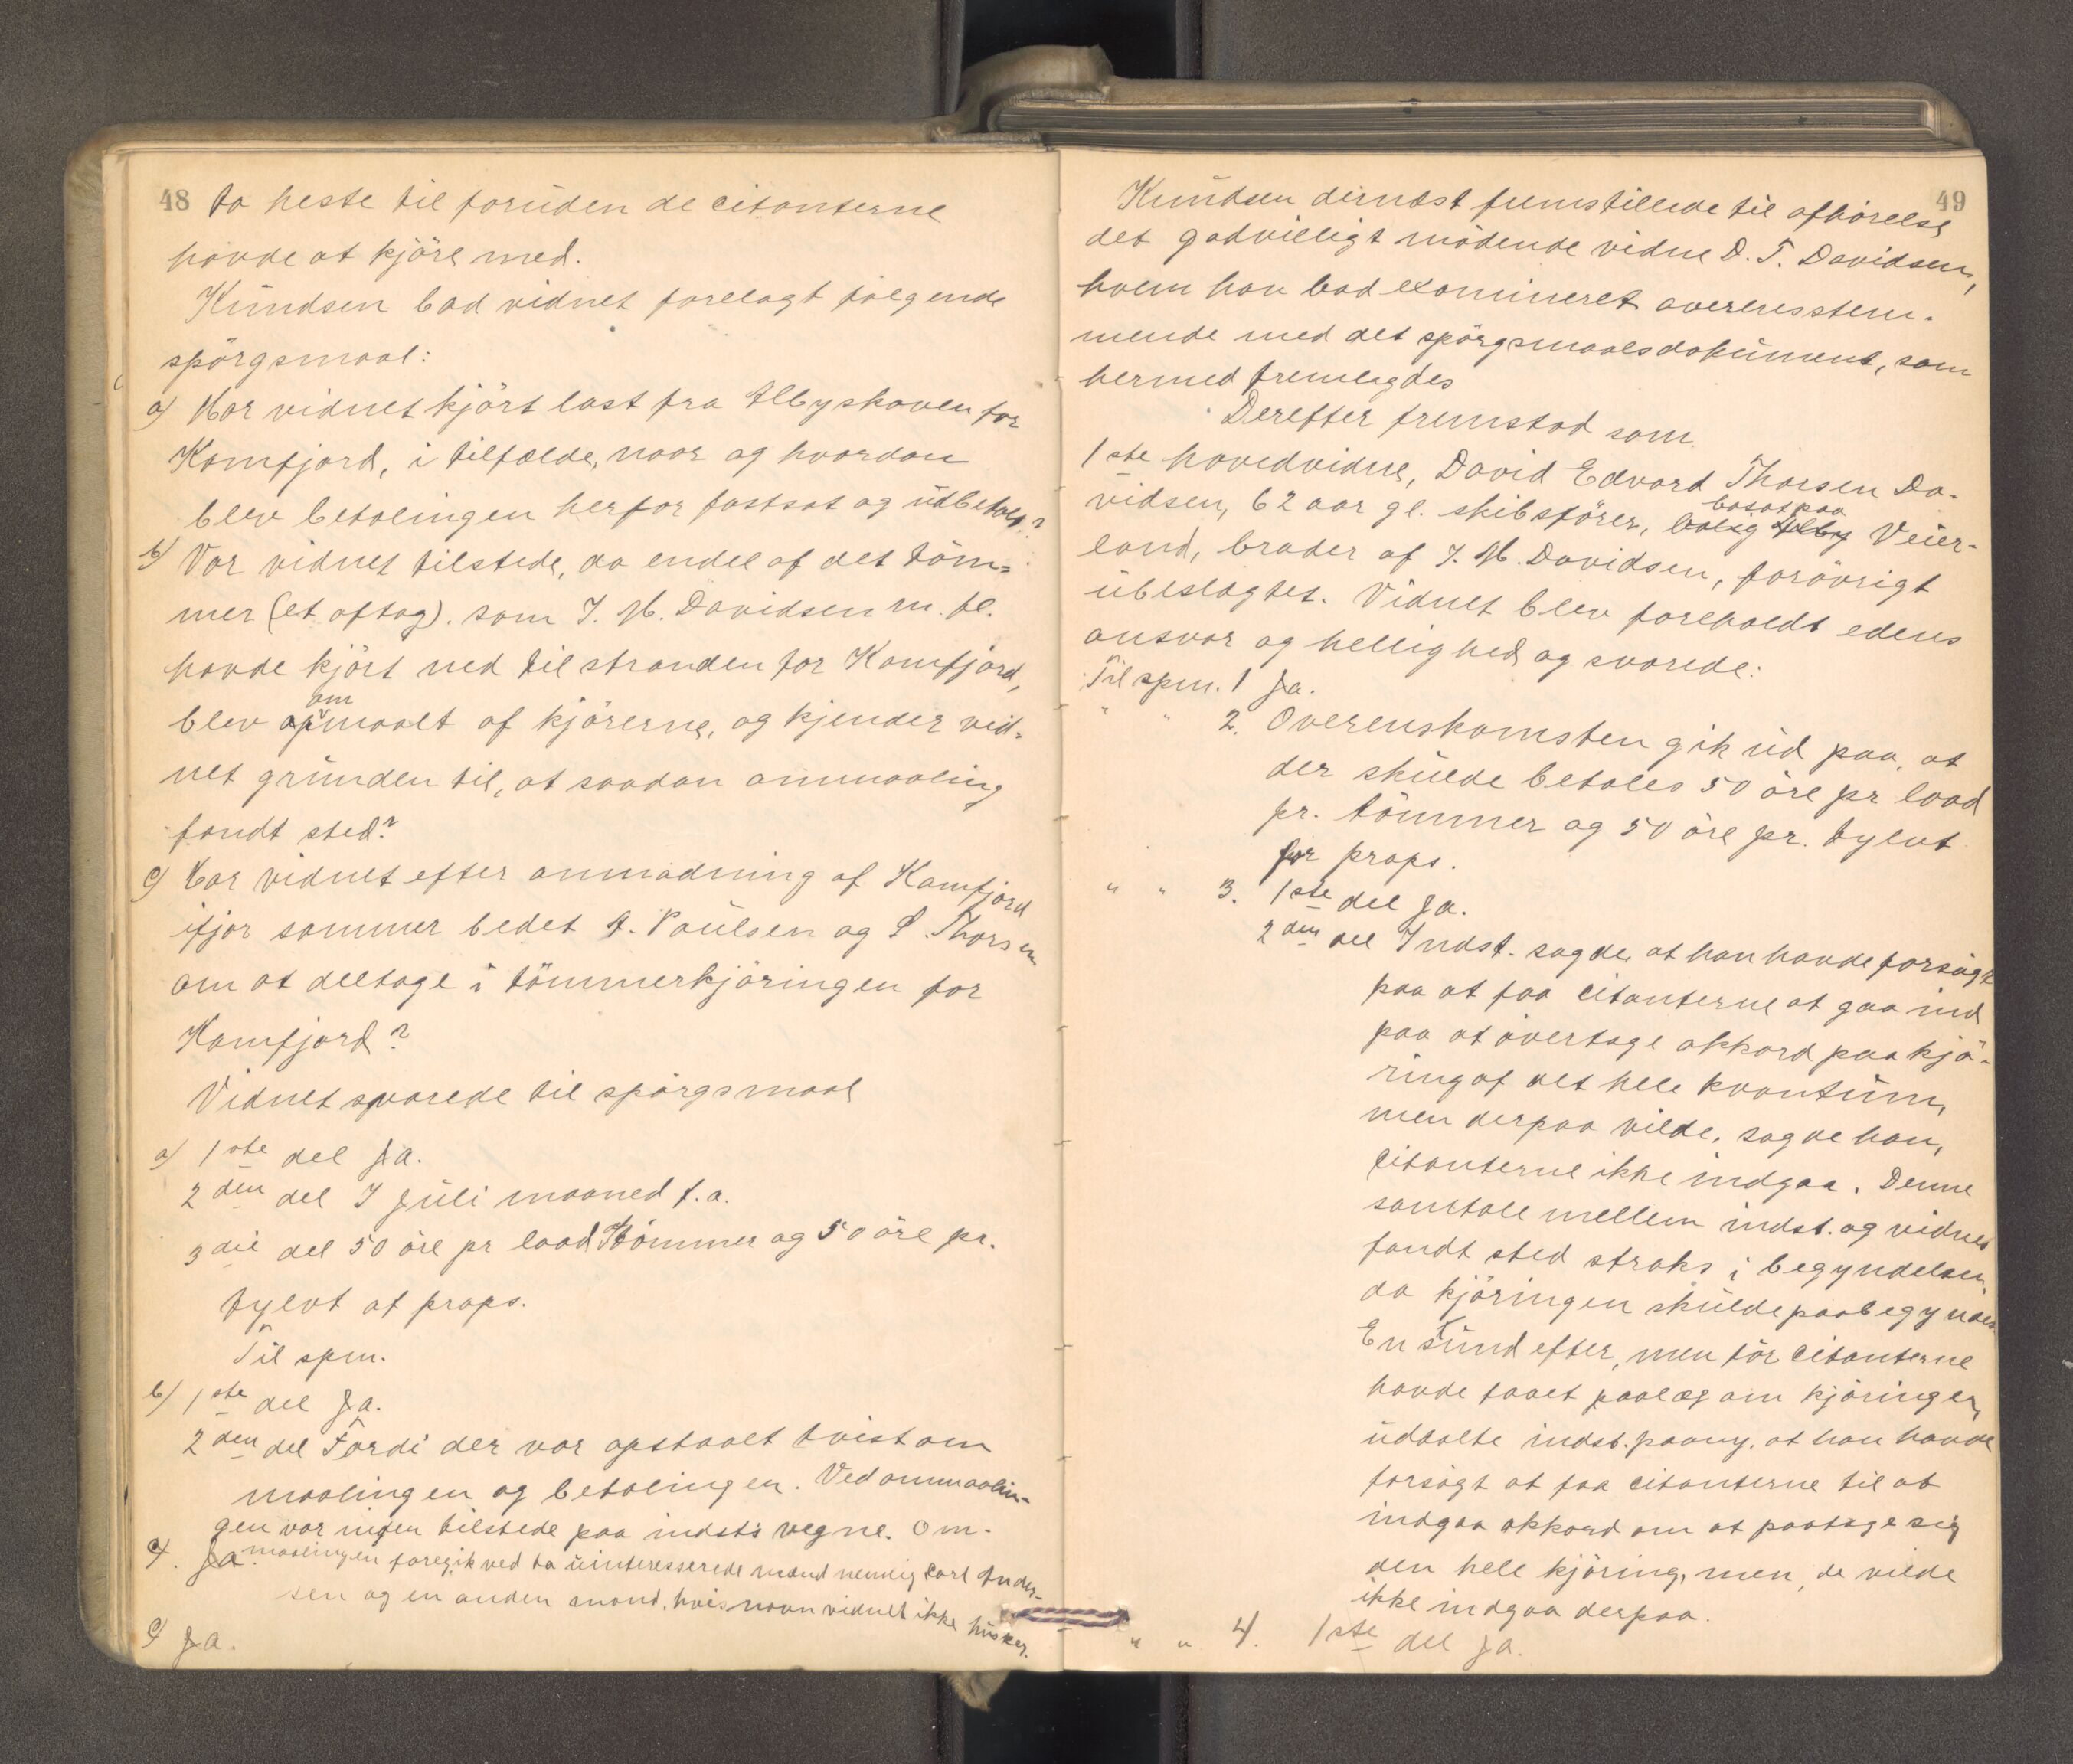 48 to heste til foruden de citanterne
havde at kjöre med.
Knudsen bad vidnet forelagt følgende
spörgsmaal:
a) Har vidnet kjört last fra Elbyskoven for
Kamfjord, i tilfælde, naar og hvordan
blev betalingen herfor fastsat og udbetalt?
b) Var vidnet tilstede, da endel af det töm-
mer (et aftag). som J. M. Davidsen m. fl.
havde kjört ned til stranden for Kamfjord,
om
blev opmaalt af kjörerne, og kjender vid-
net grunden til, at saadan ommaaling
fandt sted?
c) Har vidnet efter anmodning af Kamfjord
ifjor sommer bedet A. Paulsen og L. Thorsen
om at deltage i tömmerkjöringen for
Kamfjord?
Vidnet svarede til spörgsmaal
a) 1ste del Ja.
2den del I Juli maaned f.a.
3die del 50 öre pr laad tömmer og 50 öre pr.
tylvt af props.
Til spm.
b) 1ste del Ja.
2den del Fordi der var opstaaet tvist om
maalingen og betalingen. Ved ommaalin-
gen var ingen tilstede paa indst's vegne. Om-
c). Ja. maalingen foregik ved to uinteresserede mænd nemlig Carl Ander-
sen og en anden mand, hvis navn vidnet ikke husker.
c) Ja.
49
Knudsen dernæst fremstillede til afhörelse
det godvilligt mödende vidne D. T. Davidsen,
hvem han bad examineret overensstem-
mende med det spörgsmaalsdokument, som
hermed fremlagdes
Derefter fremstod som
1ste hovedvidne, David Edvard Thorsen Da-
bosat paa
vidsen, 62 aar gl. skibsförer, bolig Elby Veier-
land, broder af J. M. Davidsen, forövrigt
ubeslægtet. Vidnet blev foreholdt edens
ansvar og hellighed og svarede:
Til spm. 1 Ja.
" " 2. Overenskomsten gik ud paa, at
der skulde betales 50 öre pr laad
pr. tömmer og 50 öre pr. tylvt
for props.
" " 3. 1ste del Ja.
2den del Indst. sagde, at han havde forsögt
paa at faa citanterne at gaa ind
paa at overtage akkord paa kjö-
ring af det hele kvantum,
men derpaa vilde, sagde han,
citanterne ikke indgaa. Denne
samtale mellem indst. og vidnet
fandt sted straks i begyndelsen,
da kjöringen skulde paabegyndes.
En stund efter, men för citanterne
havde faaet paalæg om kjöringen,
udtalte indst. paany, at han havde
forsögt at faa citanterne til at
indgaa akkord om at paatage sig
den hele kjöring, men, de vilde
ikke indgaa derpaa.
" " 4. 1ste del Ja.